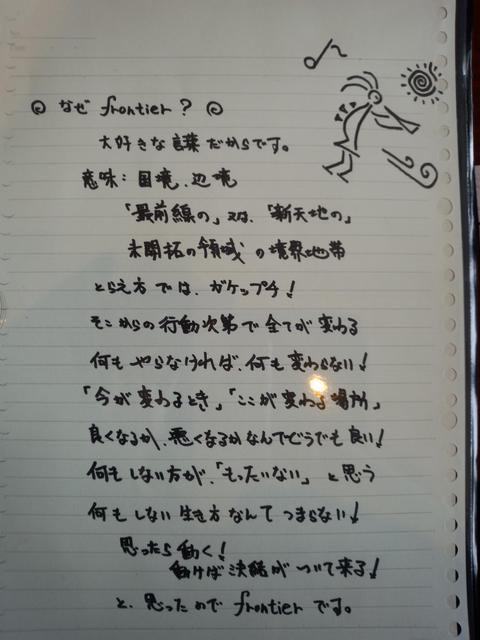 なぜ frontier ?
大好きな言葉だからです。
意味:国境、辺境
「最前線の」又は、「新天地の」
未開拓の領域の境界地帯
とらえ方では、ガケップチ!
そこからの行動次第で全てが変わる
何もやらなければ、何も変わらない!
「今が変わるとき」「ここが変わる場所」
良くなるか、悪くなるかなんてどうでも良い!
何もしない方が、「もったいない」と思う
何もしない生き方なんてつまらない!
思ったら動く!
動けば決結がついて来る!
と、思ったので frontier です。